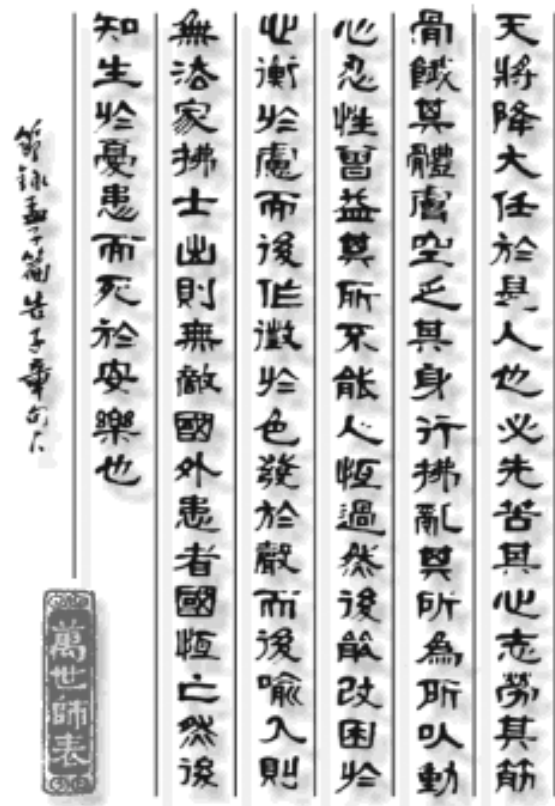 天將降大任於是人也必先苦其心志勞其筋
骨餓其體膚空乏其身行拂亂其所為所以動
心忍性曾益其所不能人恆過然後能改困於
心衡於慮而後作徵於色發於聲而後喻入則
無法家拂士出則無敵國外患者國恆亡然後
知生於憂患而死於安樂也
節錄孟子篇告子章句下
萬世師表